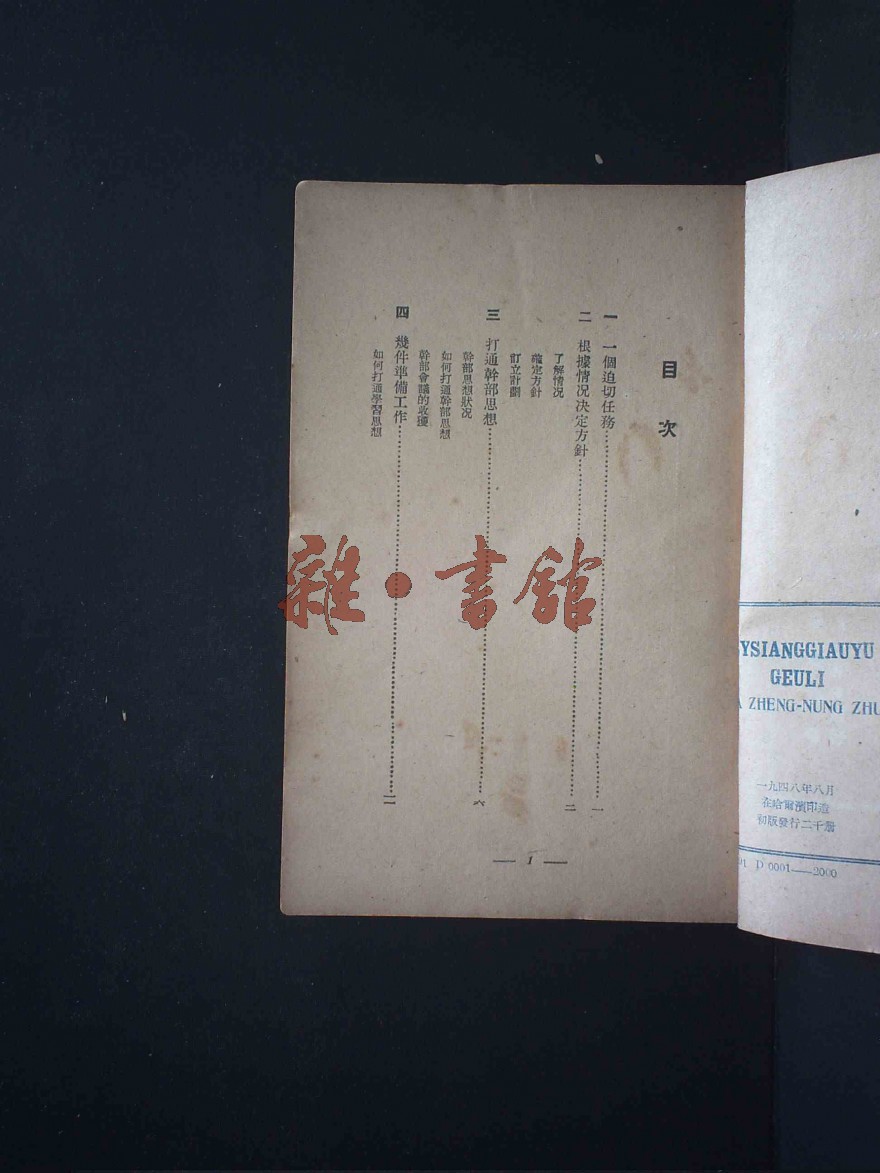 目 次
一 一個迫切任務……一
二 根據情况决定方針……二
了解情况
確定方針
訂立計劃
三 打通幹部思想……六
幹部思想狀况
如何打通幹部思想
幹部會議的收獲
四 幾件準備工作……一二
如何打通學習思想
— 1 —
雜·書舘
YSIANGGIAUYU
GEULI
ZHENG-NUNG ZHU
一九四八年八月
在哈爾濱印造
初版發行二千册
D 0001—2000